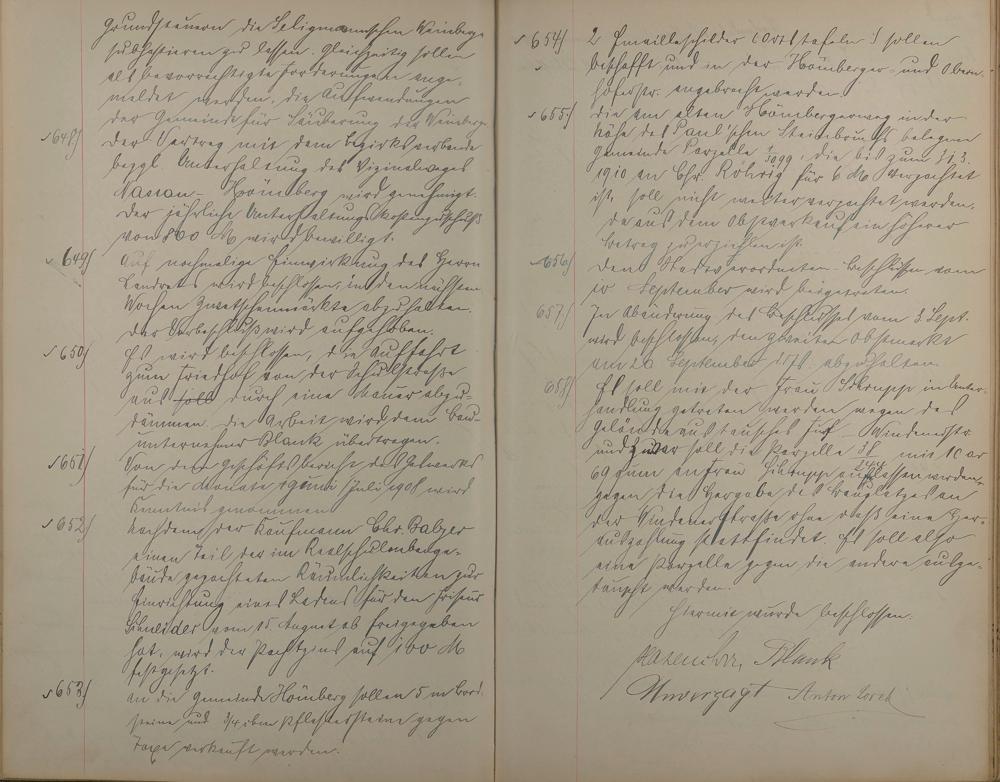 Grundsteuern die Seligmann'schen Weinberge
subhastieren zu lassen. Gleichzeitig sollen
als bevorrechtigte Forderungen ange-
meldet werden, die Aufwendungen
der Gemeinde für Säuberung der Weinberge
648) Der Vertrag mit dem Bezirksverbande
bezgl. Unterhaltung des Vizinalweges
Nassau-Hömberg wird genehmigt.
Der jährliche Unterhaltungskostenzuschuß
von 800 M wird bewilligt.
649) Auf nochmalige Einwirkung des Herrn
Landrats wird beschlossen, in den nächsten
Wochen Zwetschenmärkte abzuhalten.
Der Vorbeschluß wird aufgehoben.
650) Es wird beschlossen, die Auffahrt
zum Friedhof von der Schulstraße
aus soll durch eine Mauer abzu-
dämmen. Die Arbeit wird dem Bau-
unternehmer Plank übertragen.
651) Von dem Geschäftsbericht des Gaswerks
für die Monate Juni/Juli 1908 wird
Kenntnis genommen.
652) Nachdem der Kaufmann Chr. Balzer
einen Teil der im Realschulnebenge-
bäude gepachteten Räumlichkeiten zur
Einrichtung eines Ladens für den Friseur
Schneider vom 15. August ab freigegeben
hat, wird der Pachtzins auf 100 M
festgesetzt.
653) An die Gemeinde Hömberg sollen 5 m Bord-
steine und 3/4 cbm Pflastersteine gegen
Taxe verkauft werden.
654) 2 Emailleschilder (Ortstafeln) sollen
beschafft und in der Hömberger- und Obern-
höferstr. angebracht werden.
655) Die am alten Hömbergerweg in der
Nähe des Paul'schen Steinbruchs belegene
Gemeinde Parzelle 1099, die bis zum 31.3.
1910 an Chr. Röhrig für 6 M verpachtet
ist, soll nicht weiter verpachtet werden,
da aus dem Obstverkauf ein höherer
Betrag zu erziehlen ist.
656) Den Stadtverordneten-Beschlüssen vom
10 September wird beigetreten.
657) In Abänderung des Beschlusses vom 3. Sept.
wird beschlossen, den zweiten Obstmarkt
am 26 September 1908 abzuhalten.
658) Es soll mit der Frau Schrupp in Unter-
handlung getreten werden wegen des
Geländeaustausches Windenerstr.
und zwar soll die Parzelle mit 10 ar
69 qm an Frau Schrupp werden
gegen die Hergabe des Bauplatzes an
der Windenerstraße ohne daß eine Her-
auszahlung stattfindet. Es soll also
eine Parzelle gegen die andere ausge-
tauscht werden.
Hiermit wurde beschlossen.
Hasenclever, Plank
Unverzagt Anton